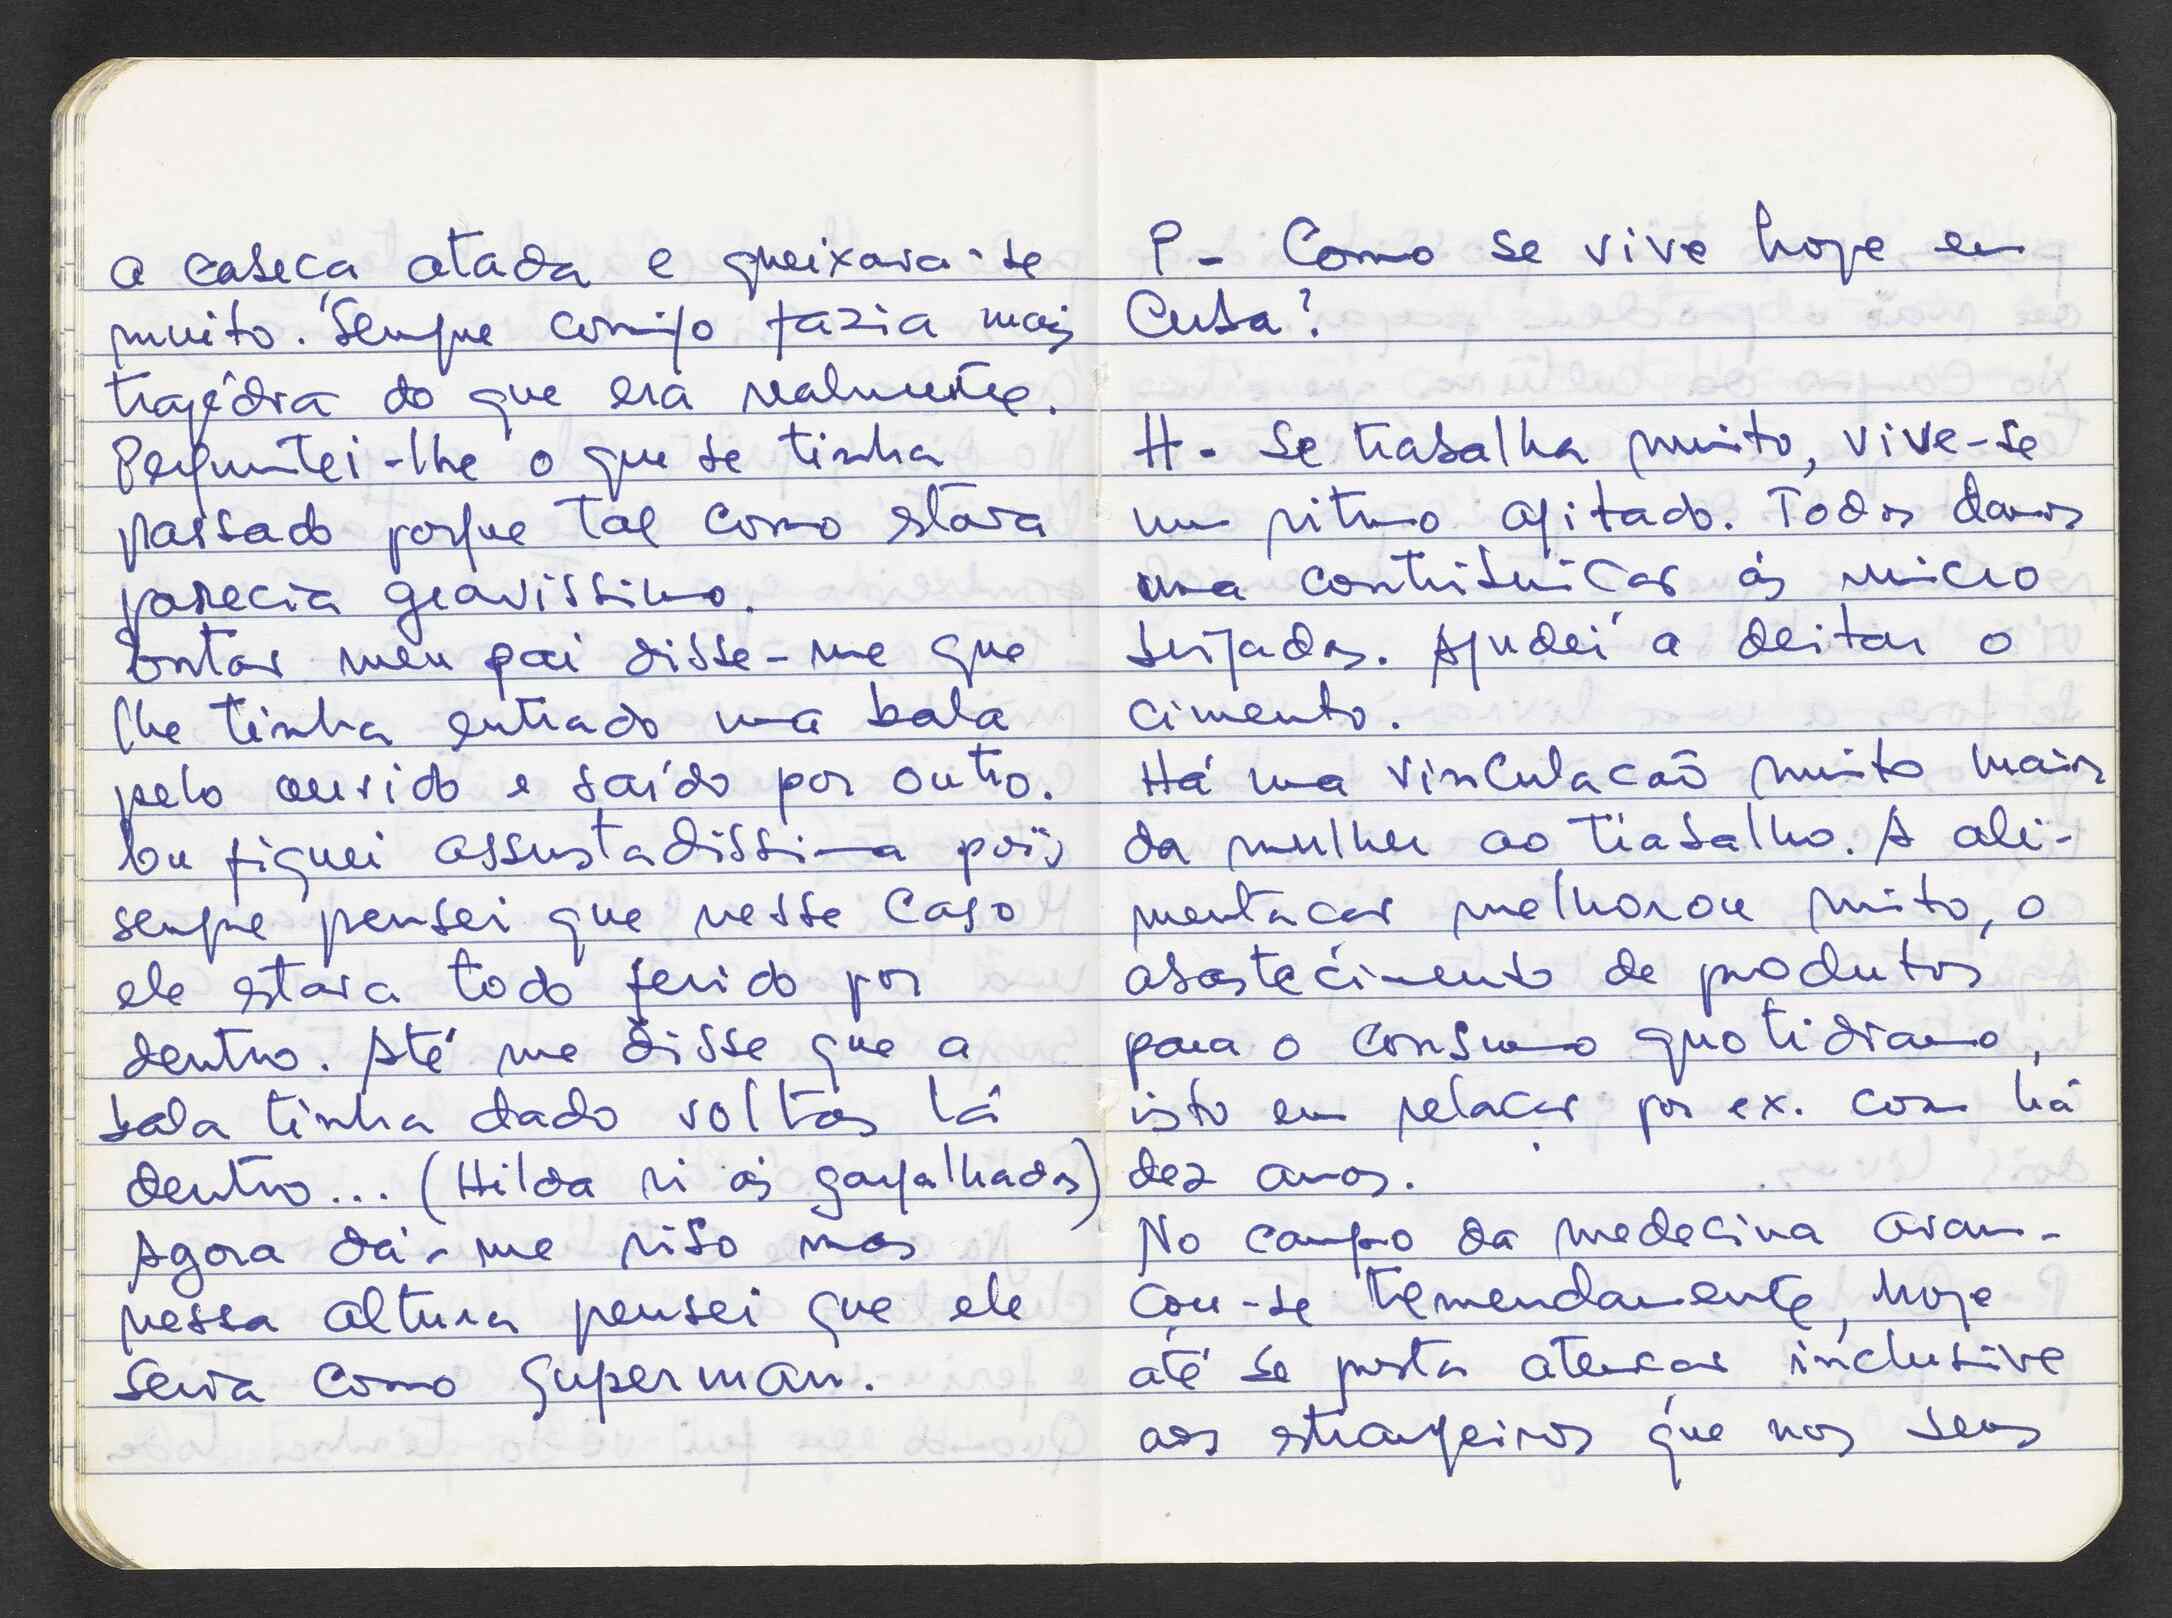 a cabeça atada e queixava-se
muito. Sempre comigo fazia mais
tragédia do que era realmente.
Perguntei-lhe o que se tinha
passado porque tal como estava
parecia gravissimo.
Entao meu pai disse-me que
lhe tinha entrado uma bala
pelo ouvido e saído por outro.
Eu fiquei assustadissima pois
sempre pensei que nesse caso
ele estava todo ferido por
dentro. Até me disse que a
bala tinha dado voltas lá
dentro... (Hilda ri ás gargalhadas)
Agora dá-me riso mas
nessa altura pensei que ele
seria como Superman.
P - Como se vive hoje em
Cuba?
H - Se trabalha muito, vive-se
um ritmo agitado. Todos damos
uma contribuicao ás micro
brigadas. Ajudei a deitar o
cimento.
Há uma vinculacaõ muito maior
da mulher ao trabalho. A ali-
mentacao melhorou muito, o
abastecimento de produtos
para o consumo quotidiano,
isto em relacao por ex. com há
dez anos.
No campo da medecina avan-
cou-se tremendamente, hoje
até se presta atencao inclusive
aos estrangeiros que nos seus